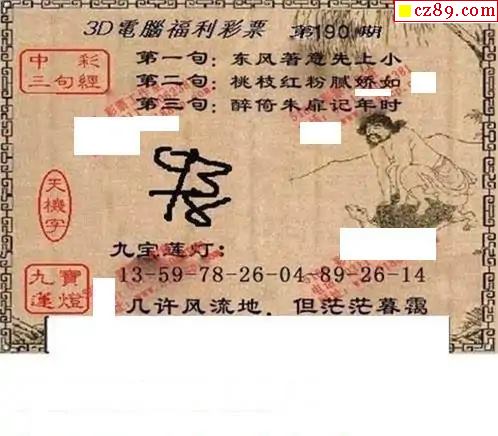 cz89.com
3D電腦福利彩票 第190期
中彩
三句經
第一句：东风著意先上小
第二句：桃枝红粉腻娇如
第三句：醉倚朱扉记年时
天機字
九宝莲灯：
九寶
蓮燈
13-59-78-26-04-89-26-14
几许风流地，但茫茫暮霭